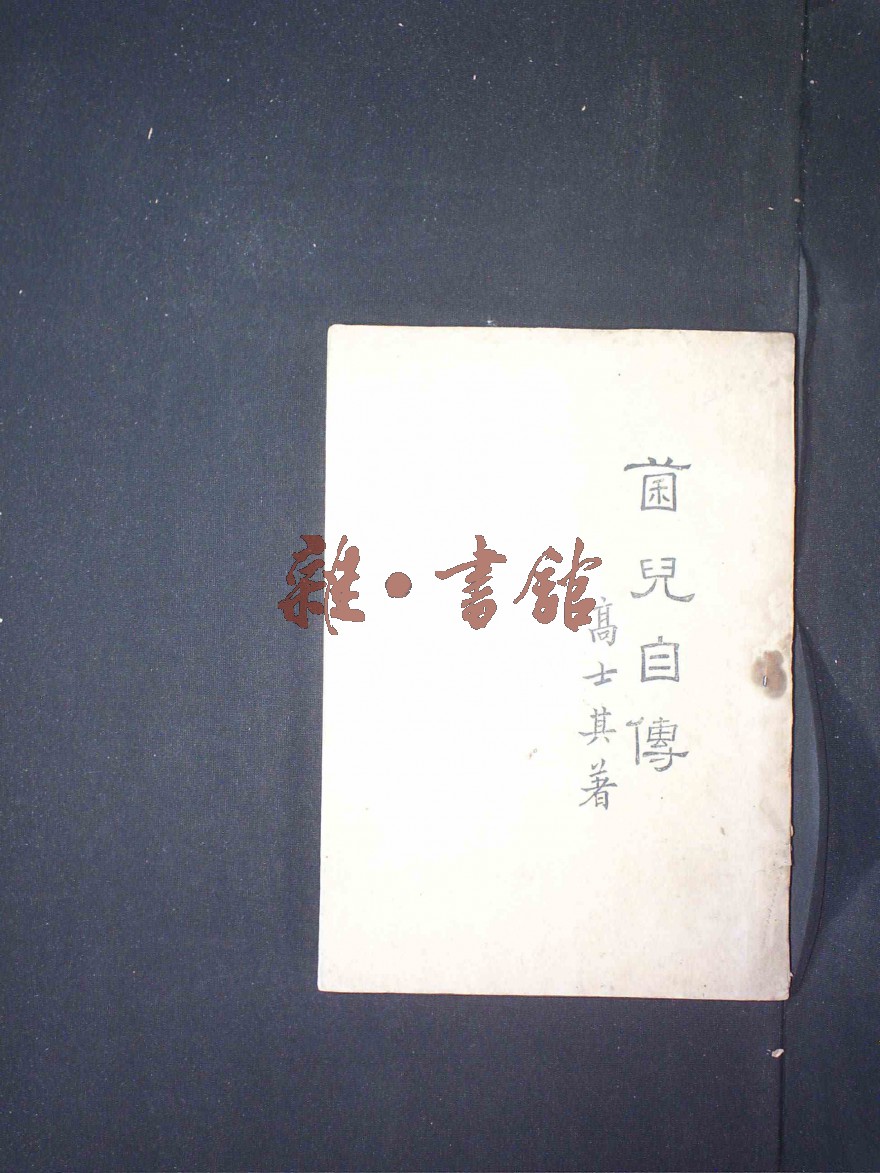 菌兒自傳
高士其著
雜·書館